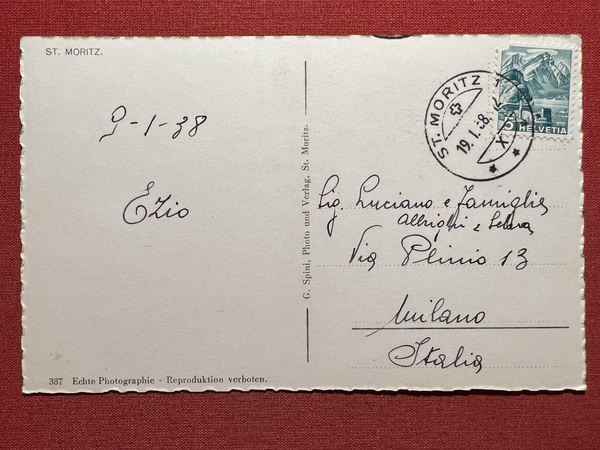 ST. MORITZ.
9-1-38
Ezio
G. Spini, Photo und Verlag, St. Moritz.
ST. MORITZ 1
19.I.38.-12
X
5 HELVETIA
Sig. Luciano e Famiglia
Albrighi e Selva
Via Plinio 13
Milano
Italia
387 Echte Photographie - Reproduktion verboten.